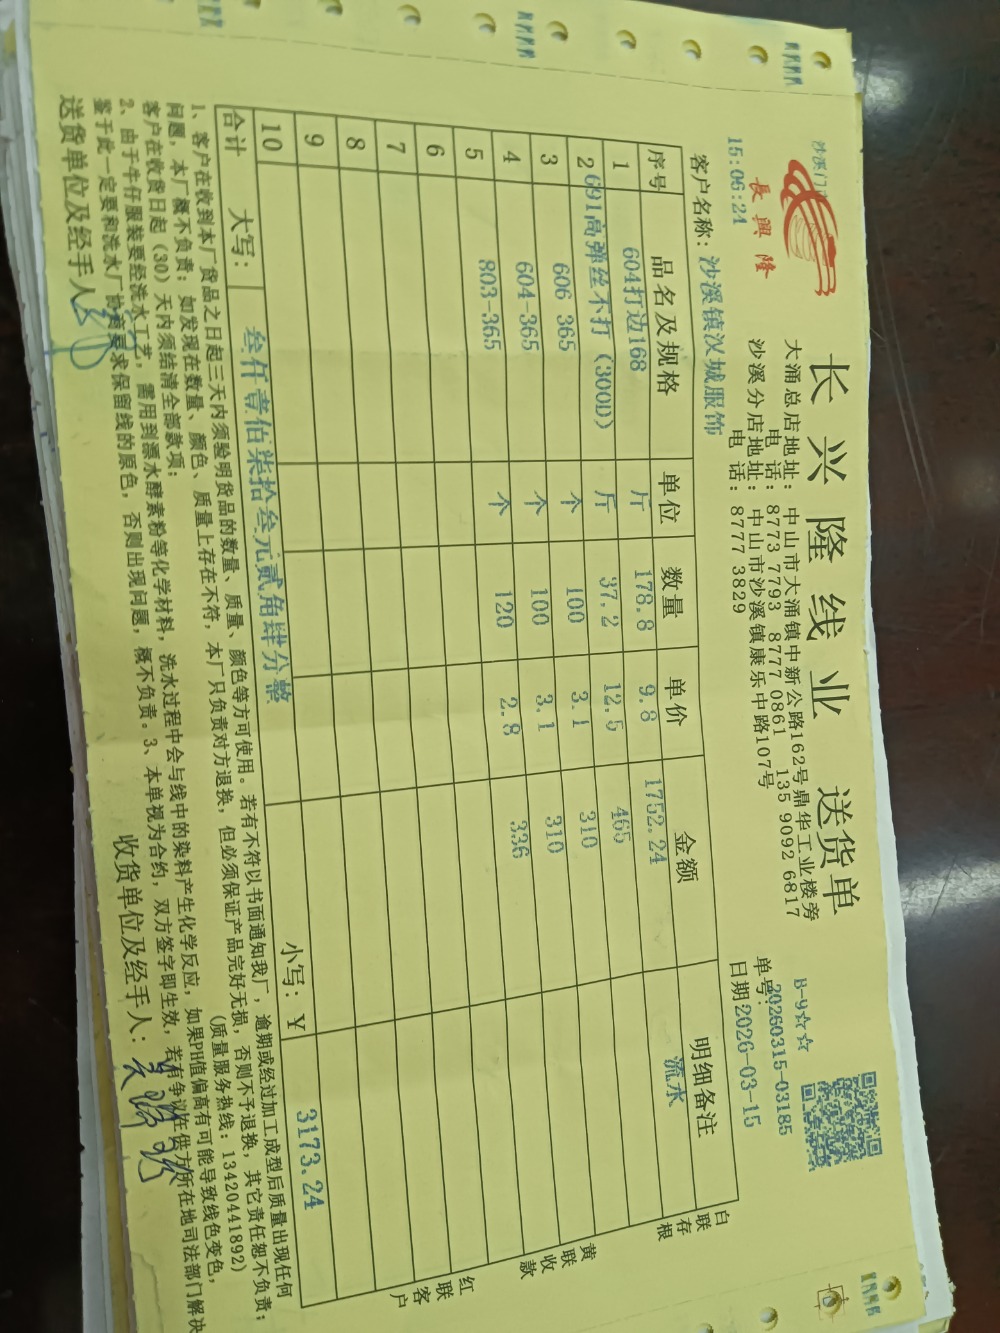 沙溪门
長興隆
长兴隆线业 送货单
大涌总店地址：中山市大涌镇中新公路162号鼎华工业楼旁
电 话：8773 7793 8777 0861 135 9092 6817
沙溪分店地址：中山市沙溪镇康乐中路107号
电 话：8777 3829
B-9☆☆
单号：20260315-03185
日期：2026-03-15
15:06:24
客户名称：沙溪镇汉城服饰
序号 品名及规格 单位 数量 单价 金额 明细备注
1 604打边168 斤 178.8 9.8 1752.24 流水
2 691高弹丝不打（300D） 斤 37.2 12.5 465
3 606 365 个 100 3.1 310
4 604-365 个 100 3.1 310
5 803-365 个 120 2.8 336
6
7
8
9
10
合计 大写：叁仟壹佰柒拾叁元贰角肆分整 小写：￥ 3173.24
白联存根
黄联收款
红联客户
1、客户在收到本厂货品之日起三天内须验明货品的数量、质量、颜色等方可使用。若有不符以书面通知我厂，逾期或经过加工成型后质量出现任何
问题，本厂概不负责；如发现在数量、颜色、质量上存在不符，本厂只负责对方退换，但必须保证产品完好无损，否则不予退换，其它责任恕不负责；
客户在收货日起（30）天内须结清全部款项； (质量服务热线：13420441892)
2、由于牛仔服装要经洗水工艺，需用到漂水酵素粉等化学材料，洗水过程中会与线中的染料产生化学反应，如果PH值偏高有可能导致线色变色，
鉴于此一定要和洗水厂协商要求保留线的原色，否则出现问题，概不负责。3、本单视为合约，双方签字即生效，若有争议在供方所在地司法部门解决
送货单位及经手人： 收货单位及经手人：